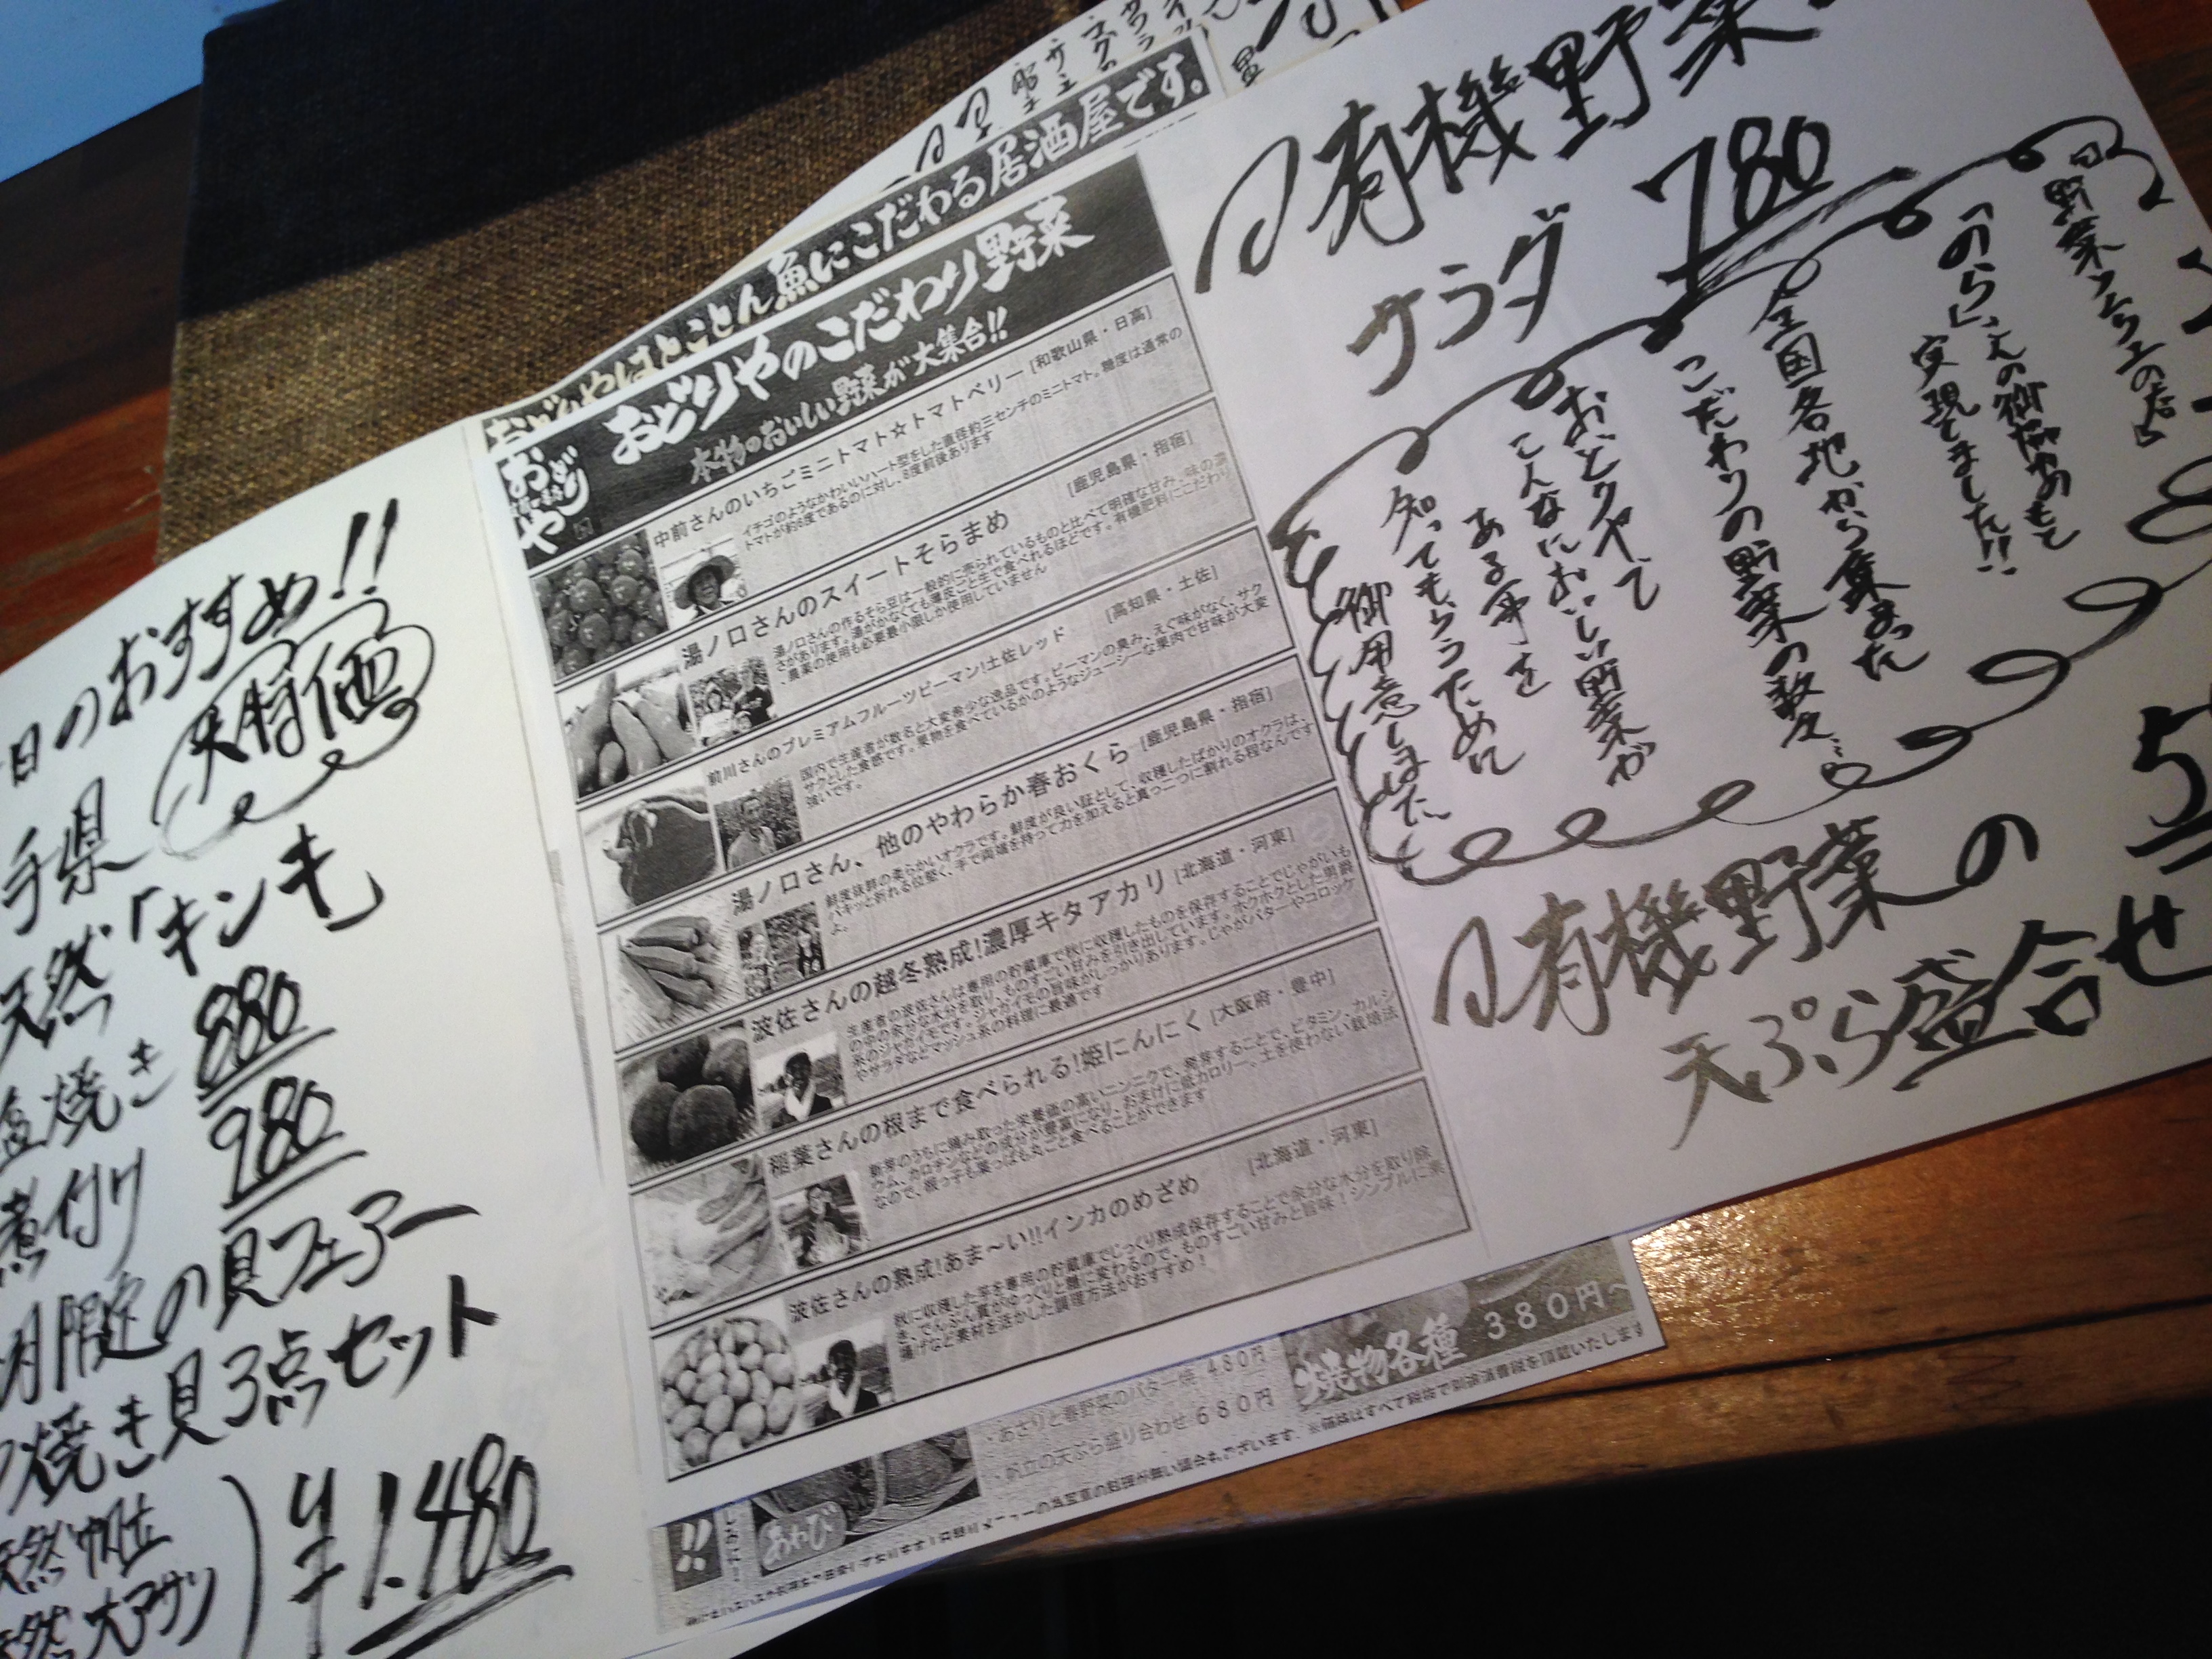 日のおすすめ!!
大特価
手県
天然「キンキ」
塩焼き 880
煮付け 980
月限定の貝フェアー
焼き貝3点セット
天然帆立
天然大アサリ
¥1.480
おどりやはとことん魚にこだわる居酒屋です。
おどりや
おどりやのこだわり野菜
本物のおいしい野菜が大集合!!
中前さんのいちごミニトマト☆トマトベリー [和歌山県・日高]
イチゴのようなかわいいハート型をした直径約三センチのミニトマト。糖度は通常の
トマトが約6度であるのに対し、8度前後あります
湯ノ口さんのスイートそらまめ [鹿児島県・指宿]
湯ノ口さんの作るそら豆は一般的に売られているものと比べて明確な甘み、味の濃
さがあります。湯がかなくても薄皮ごと生で食べれるほどです。有機肥料にこだわり
、農薬の使用も必要最小限しか使用していません
前川さんのプレミアムフルーツピーマン!土佐レッド [高知県・土佐]
国内で生産者が数名と大変希少な逸品です。ピーマンの臭み、えぐ味がなく、サク
サクとした食感です。果物を食べているかのようなジューシーな果肉で甘味が大変
強いです。
湯ノ口さん、他のやわらか春おくら [鹿児島県・指宿]
鮮度抜群の柔らかいオクラです。鮮度が良い証として、収穫したばかりのオクラは、
パキッと折れる位堅く、手で両端を持って力を加えると真っ二つに割れる程なんです
よ。
波佐さんの越冬熟成!濃厚キタアカリ [北海道・河東]
生産者の波佐さんは専用の貯蔵庫で秋に収穫したものを保存することでじゃがいも
の中の余分な水分を取り、ものすごい甘みを引き出しています。ホクホクとした男爵
系のジャガイモです。ジャガイモの旨味がしっかりあります。じゃがバターやコロッケ
やサラダなどマッシュ系の料理に最適です
稲葉さんの根まで食べられる!姫にんにく [大阪府・豊中]
新芽のうちに摘み取った栄養価の高いニンニクで、発芽することで、ビタミン、カルシ
ウム、カロチンなどの成分が豊富になり、おまけに低カロリー。土を使わない栽培法
なので、根っ子も葉っぱも丸ごと食べることができます
波佐さんの熟成!あま～い!!インカのめざめ [北海道・河東]
秋に収穫した芋を専用の貯蔵庫でじっくり熟成保存することで余分な水分を取り除
き、でんぷん質がゆっくりと糖に変わるので、ものすごい甘みと旨味！シンプルに素
揚げなど素材を活かした調理方法がおすすめ！
・あさりと春野菜のバター焼 480円
・帆立の天ぷら盛り合わせ 680円
あわび
焼物各種 380円～
有機野菜
サラダ 780
野菜ソムリエの店
「のら」さんの御協力のもと
実現しました!!
全国各地から集まった
こだわりの野菜の数々…
おどりやで
こんなにおいしい野菜が
ある事を
知ってもらうために
御用意しました
有機野菜の
天ぷら盛合せ